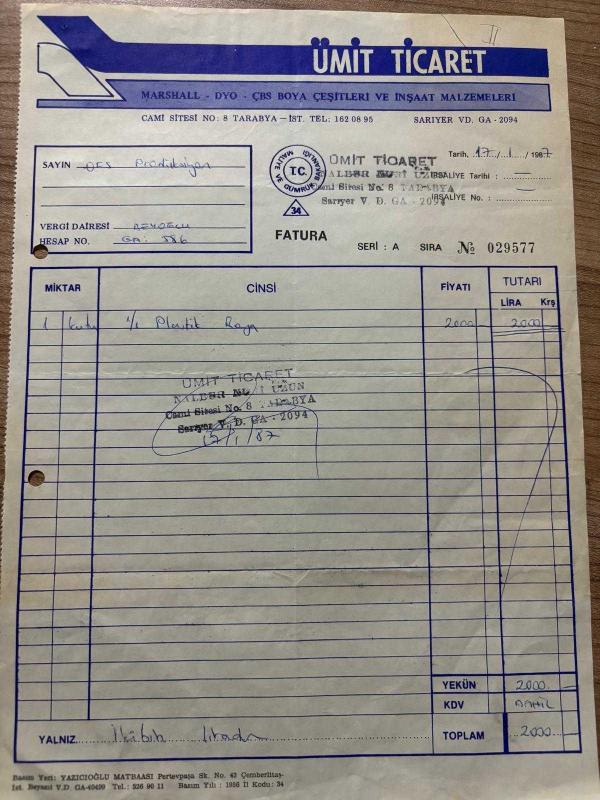 II
ÜMİT TİCARET
MARSHALL - DYO - ÇBS BOYA ÇEŞİTLERİ VE İNŞAAT MALZEMELERİ
CAMİ SİTESİ NO: 8 TARABYA - İST. TEL: 162 08 95 SARIYER VD. GA - 2094
SAYIN
VERGİ DAİRESİ BEYOĞLU
HESAP NO. GA: 586
T.C.
MALİYE VE GÜMRÜK BAKANLIĞI
34
ÜMİT TİCARET
NALBUR NURİ UZUN
Cami Sitesi No. 8 TARABYA
Sarıyer V. D. GA - 2094
Tarih. 17 / 1 / 1987
İRSALİYE Tarihi : —
İRSALİYE No. : —
FATURA
SERİ : A SIRA № 029577
MİKTAR CİNSİ FİYATI TUTARI
LİRA Krş
1 kutu 1/1 Plastik Boya 2000 2000
ÜMİT TİCARET
NALBUR NURİ UZUN
Cami Sitesi No. 8 TARABYA
Sarıyer V. D. GA - 2094
17/1/87
YEKÜN 2000
KDV DAHİL
YALNIZ İkibin liradır TOPLAM 2000
Basım Yeri: YAZICIOĞLU MATBAASI Pertevpaşa Sk. No. 43 Çemberlitaş-
İst. Beyazıt V.D. GA-40499 Tel.: 526 90 11 Basım Yılı : 1986 İl Kodu : 34